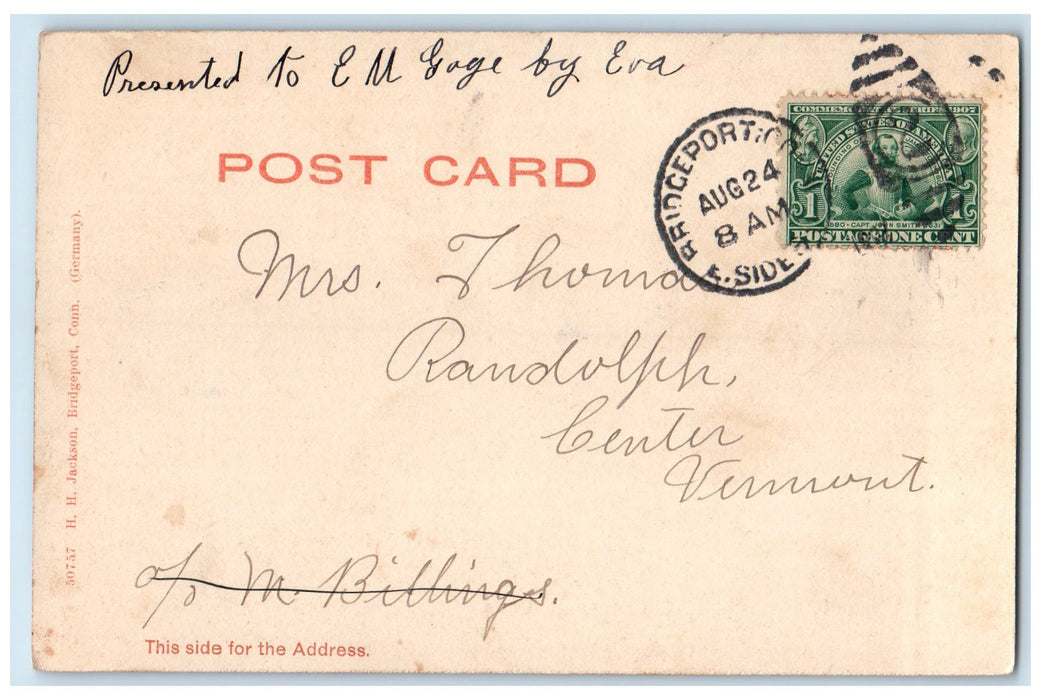 Presented to E M Goge by Eva
POST CARD
BRIDGEPORT
AUG 24
8 AM
E. SIDE
UNITED STATES OF AMERICA
1
1580 · CAPT. JOHN SMITH · 1631
POSTAGE ONE CENT
Mrs. Thomas
Randolph,
Center
Vermont.
c/o M. Billings.
This side for the Address.
50757 H. H. Jackson, Bridgeport, Conn. (Germany).